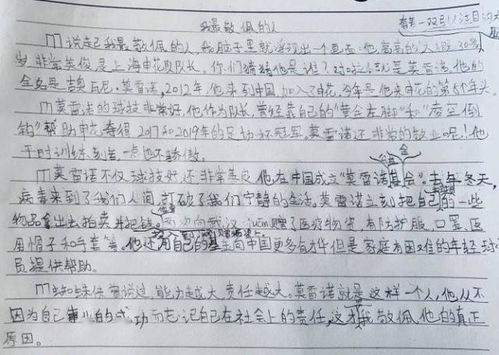 我最敬佩的人
说起我最敬佩的人,我脑子里就浮现出一个画面:他高高的个儿,30多
岁,非常英俊,是上海申花队队长。你们猜猜他是谁?对啦!就是莫雷诺,他的
全名是吉奥瓦尼·莫雷诺,2012年他来到中国加入了申花,今年是他来申花的第
莫雷诺的球技非常好,他作为队长,曾经靠自己的“黄金左脚”和“凌空倒
钩”帮助申花夺得2017和2019年的足协杯冠军,莫雷诺还非常的敬业呢!他
平时训练刻苦,一点也不骄傲。
莫雷诺不仅球技好还非常善良,他在中国成立“莫雷诺基金会”,去年冬天,
病毒来到了我们人间,打破了我们宁静的生活,莫雷诺立刻把自己的一些
物品拿出去拍卖并把钱 向武汉 赠了医疗物资,有防护服,口罩,医
用帽子和手套等。他还用自己的基金向中国更多有才华但是家庭有困难的年轻球
员提供帮助。
蜘蛛侠曾说过,能力越大责任越大。莫雷诺就是这样一个人,他从不
因为自己 的成功而忘记自己在社会上的责任,这才是我敬佩他的真正
原因。